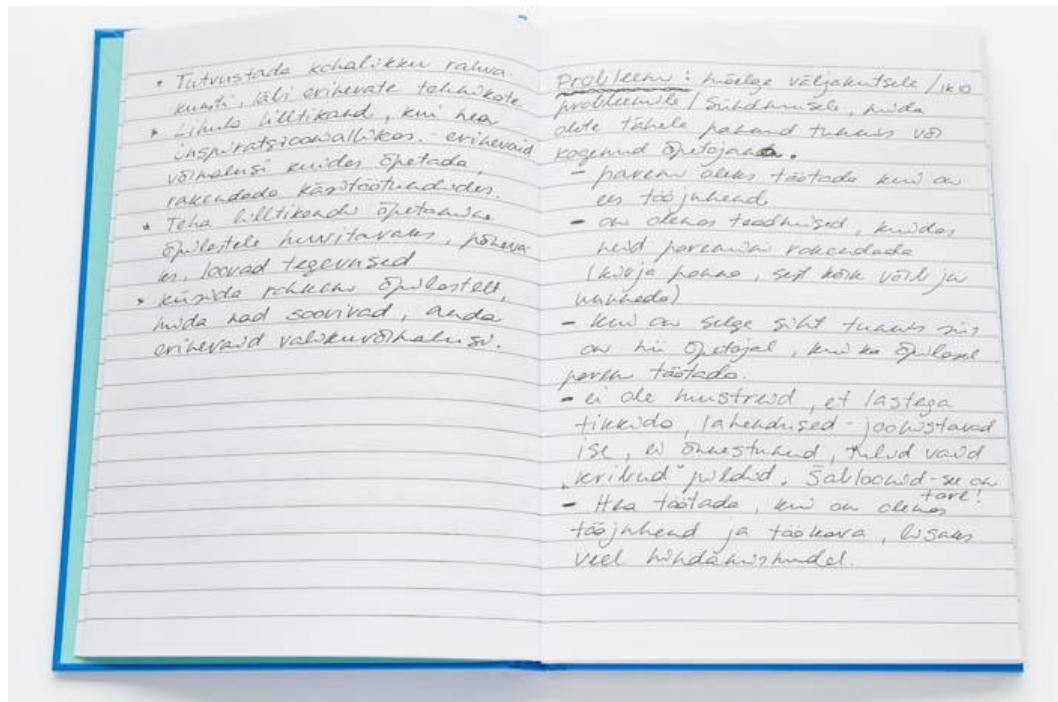 * Tutvustada kohalikku rahva-
kunsti, läbi erinevate tehnikate
* Lihula lilltikand, kui hea
inspiratsiooniallikas. - erinevaid
võimalusi kuidas õpetada,
rakendada käsitöötundides.
* Teha lilltikandi õpetamine
õpilastele huvitavaks, põneva-
ks, loovad tegevused
* küsida rohkem õpilastelt,
mida nad soovivad, anda
erinevaid valikuvõimalusi.
Probleem: mõelge väljakutsele /
probleemile / sündmusele, mida
olete tähele pannud tunnis või
kogenud õpetajana.
- parem oleks töötada kui on
ees tööjuhend,
- on olemas teadmised, kuidas
neid paremini rakendada
(kirja panna, sest kõik võib ju
ununeda)
- kui on selge siht tunnis siis
on nii õpetajal, kui ka õpilasel
parem töötada.
- ei ole mustreid, et lastega
tikkida, lahendused - joonistavad
ise, ei õnnestunud, tulid vaid
"kribud" pildid. Šabloonid - see on
tore!
- Hea töötada, kui on olemas
tööjuhend ja töökava, lisaks
veel hindamismudel.